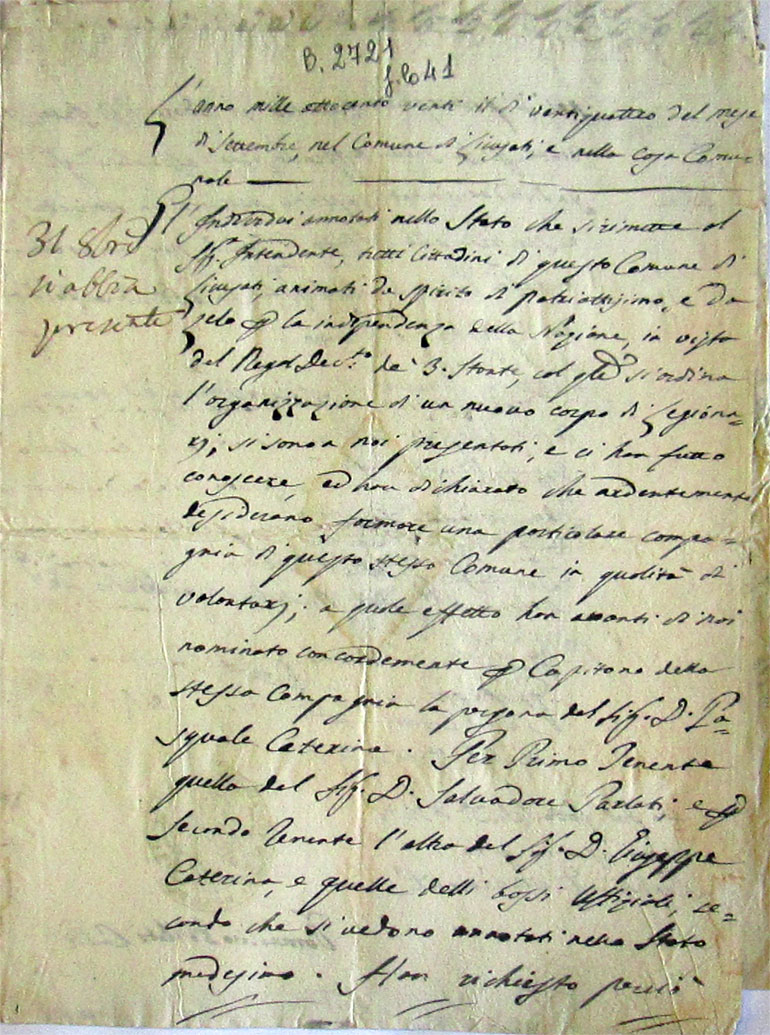 B. 2721
f.lo 41
L'anno mille ottocento venti il dì ventiquattro del mese
di Settembre, nel Comune di Liusati, e nella casa Comu-
nale
L'Individui annotati nello Stato che si rimette al
Sig. Intendente, tutti Cittadini di questo Comune di
animati da spirito di patriottismo, e da
zelo p la indipendenza della Nazione, in vista
del Real Dec.to de' 3. Stante, col qle si ordina
l'organizzazione di un nuovo corpo di Legiona-
rj, si sono a noi presentati, e ci han fatto
conoscere, ed han dichiarato che ardentemente
desiderano formare una particolare compa-
gnia di questo stesso Comune in qualità di
volontarj; a quale effetto han avanti di noi
nominato concordemente p Capitano della
stessa Compagnia la persona del Sig. D. Pa-
squale Caterina. Per Primo Tenente
quella del Sig. D. Salvadore Parlati, e p
secondo Tenente l'altra del Sig. D. Giuseppe
Caterina, e quelle delli bassi Uffiziali, se-
condo che si vedono annotati nello Stato
medesimo. Han richiesto perciò
31 8bre
si abbia
presente